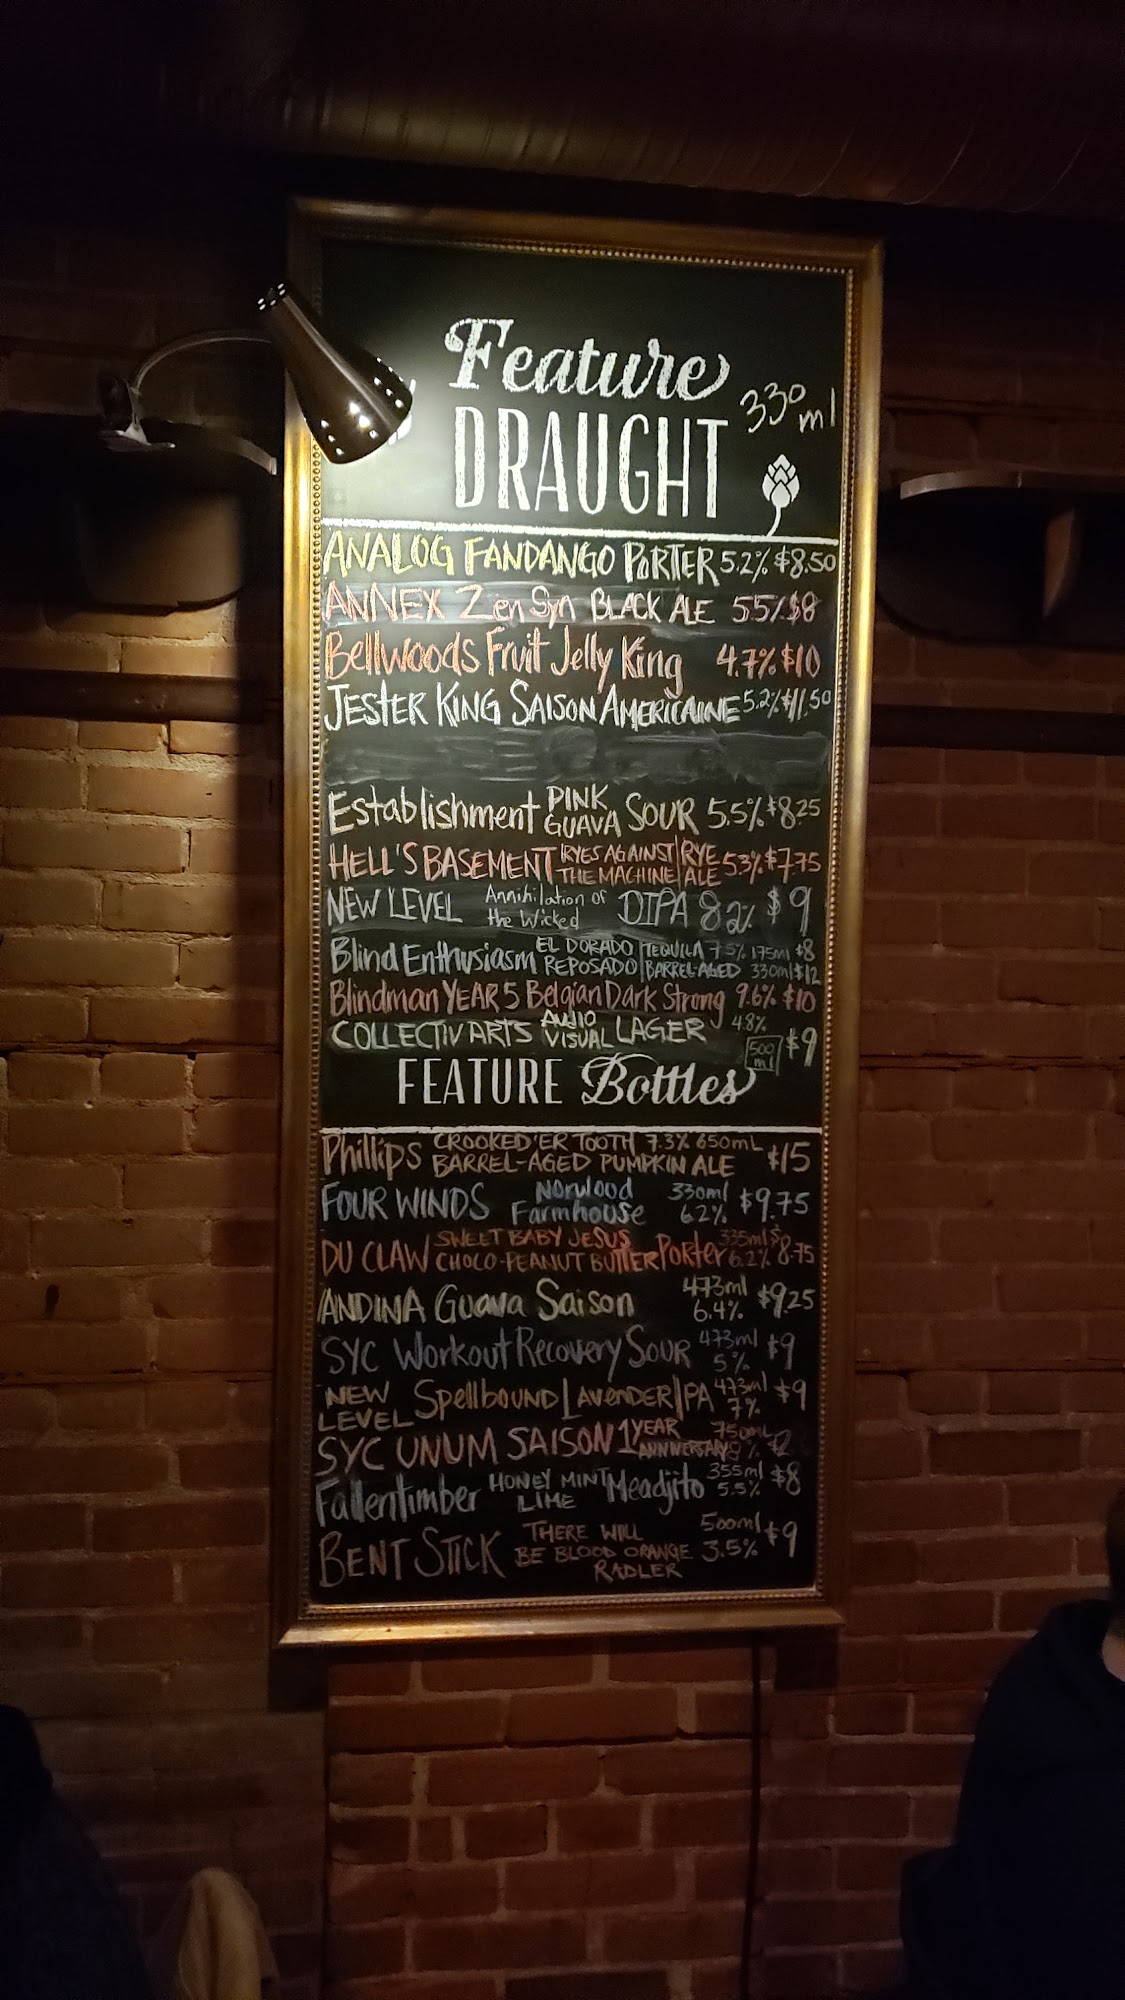 Feature
DRAUGHT 330 ml
ANALOG FANDANGO PORTER 5.2% $8.50
ANNEX Zen Syn BLACK ALE 5.5% $8
Bellwoods Fruit Jelly King 4.7% $10
JESTER KING SAISON AMERICAINE 5.2% $11.50
Establishment PINK GUAVA SOUR 5.5% $8.25
HELL'S BASEMENT RYES AGAINST THE MACHINE RYE ALE 5.3% $7.75
NEW LEVEL Annihilation of the Wicked DIPA 8.2% $9
Blind Enthusiasm EL DORADO REPOSADO TEQUILLA BARREL-AGED 7.5% 175ml $8 330ml $12
Blindman YEAR 5 Belgian Dark Strong 9.6% $10
COLLECTIV ARTS AUDIO VISUAL LAGER 4.8% 500 ml $9
FEATURE Bottles
Phillips CROOKED'ER TOOTH 7.3% 650mL BARREL-AGED PUMPKIN ALE $15
FOUR WINDS Norwood Farmhouse 330ml 6.2% $9.75
DU CLAW SWEET BABY JESUS CHOCO-PEANUT BUTTER Porter 335ml 6.2% $8.75
ANDINA Guava Saison 473ml 6.4% $9.25
SYC Workout Recovery SOUR 473ml 5% $9
NEW LEVEL Spellbound LAVENDER IPA 473ml 7% $9
SYC UNUM SAISON 1 YEAR ANNIVERSARY 750mL
Fallentimber HONEY MINT LIME Meadjito 355ml 5.5% $8
BENT STICK THERE WILL BE BLOOD ORANGE RADLER 500ml 3.5% $9